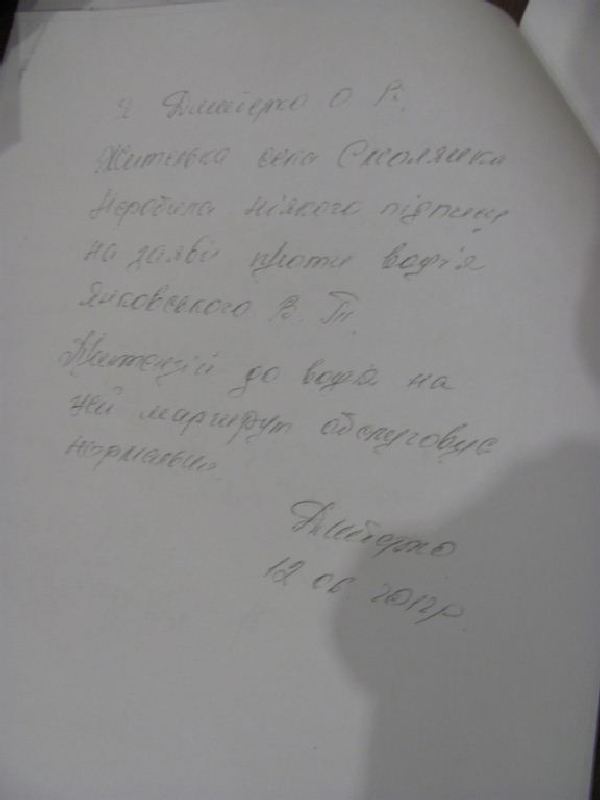 Я Дмитерко О. В.
Жителька села Смолянка
Неробила ніякого підпису
на заяві проти водія
Янковського В. П.
Притензій до водія на
цей маршрут обслуговує
нормально.
Дмитерко
12 06 2012р